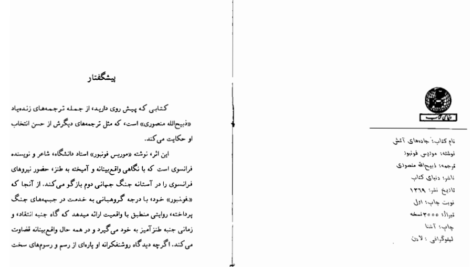 پیشگفتار
کتابی که پیش روی دارید، از جمله ترجمه‌های زنده‌یاد
«ذبیح‌الله منصوری» است، که مثل ترجمه‌های دیگرش از حسن انتخاب
او حکایت می‌کند.
این اثر، نوشته «موریس فونبور» استاد دانشگاه، شاعر و نویسنده
فرانسوی است که با نگاهی واقع‌بینانه و آمیخته به طنز، حضور نیروهای
فرانسوی را در آستانه جنگ جهانی دوم بازگو می‌کند. از آنجا که
«فونبور» خود، با درجه گروهبانی به خدمت در جبهه‌های جنگ
پرداخته، روایتی منطبق با واقعیت ارائه میدهد که گاه جنبه انتقاد، و
زمانی جنبه طنزآمیز به خود می‌گیرد و در همه حال واقع‌بینانه قضاوت
می‌کند. اگرچه دیدگاه روشنفکرانه او پاره‌ای از رسم و رسوم‌های سخت
نام کتاب: جاده‌های آتش
نوشته: موریس فونبور
ترجمه: ذبیح‌الله منصوری
ناشر: دنیای کتاب
تاریخ نشر: ۱۳۶۹
نوبت چاپ: اول
تیراژ: ۳۰۰۰ نسخه
چاپ: آشنا
لیتوگرافی: لادن